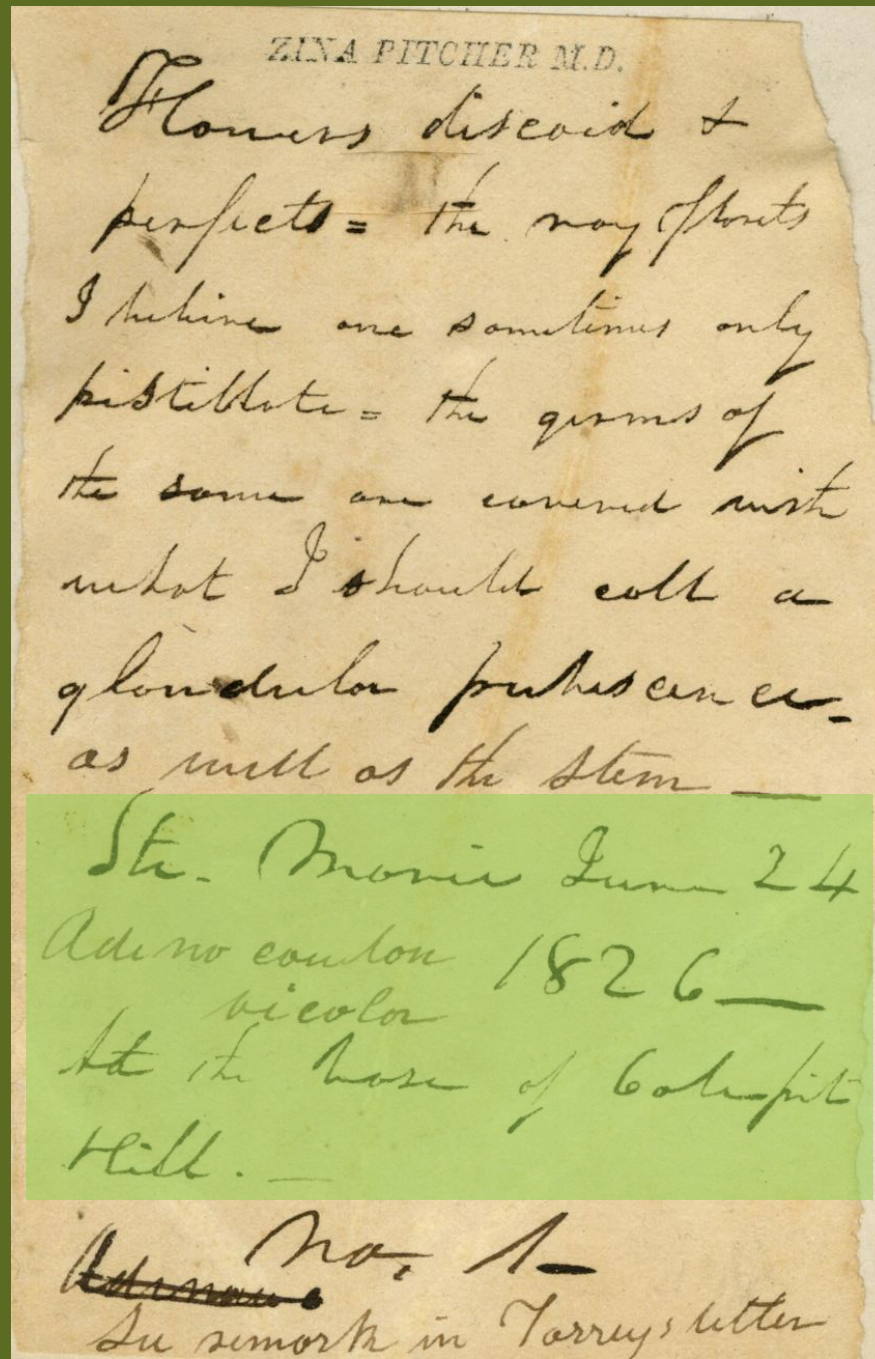 ZINA PITCHER M.D.
Flowers discoid &
perfects = the ray florets
I believe are sometimes only
pistillate = the germs of
the same are covered with
what I should call a
glandular pubescence -
as well as the stem —
Ste. Marie June 24
Adenocaulon 1826 —
bicolor
At the base of
Hill. —
No. 1 -
See remark in Torreys letter